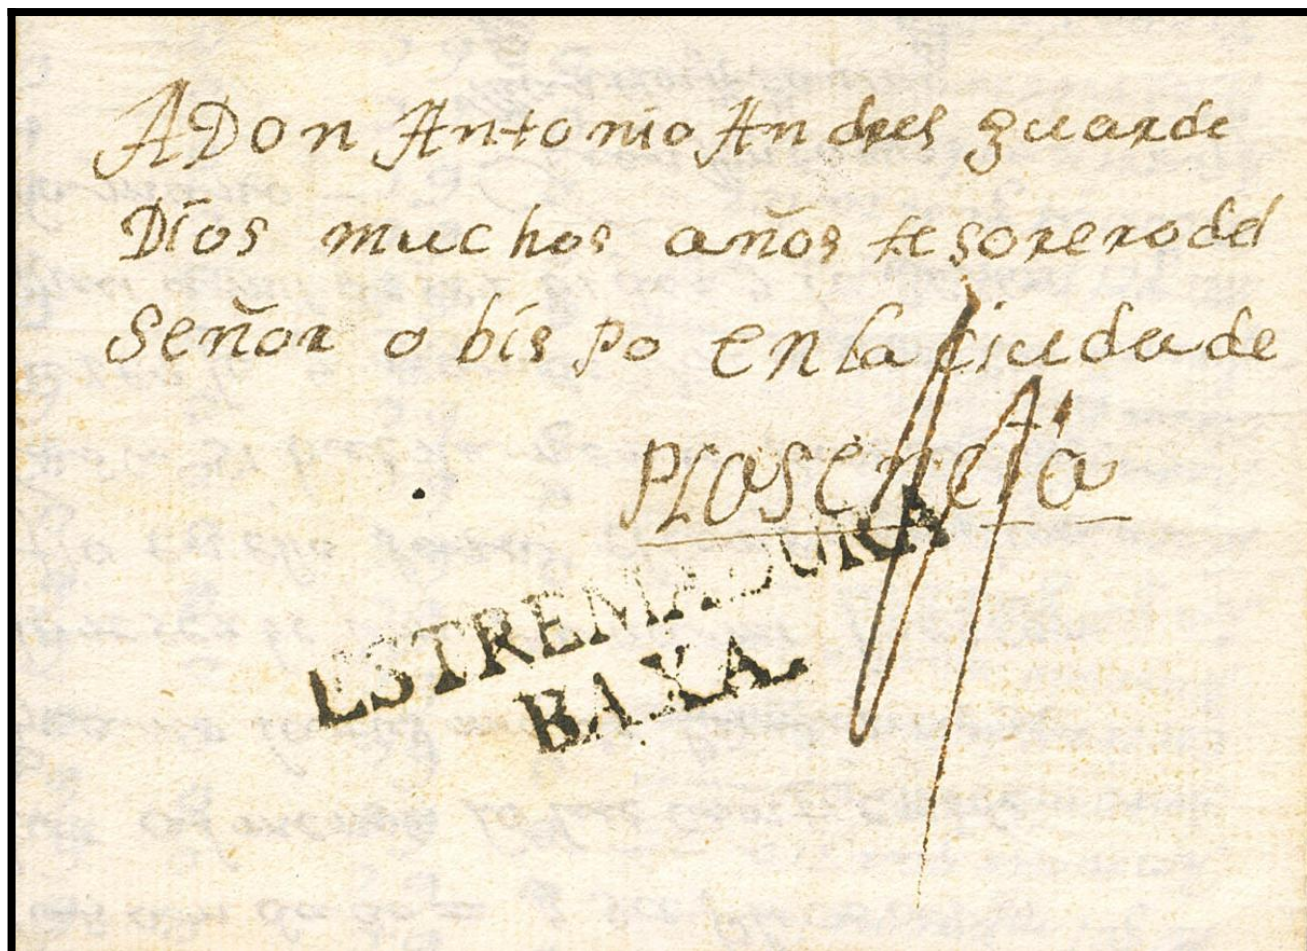 A Don Antonio Andres guarde
Dios muchos años tesorero del
Señor obispo en la Ciudade
Plasencia
ESTREMADURA
BAXA.